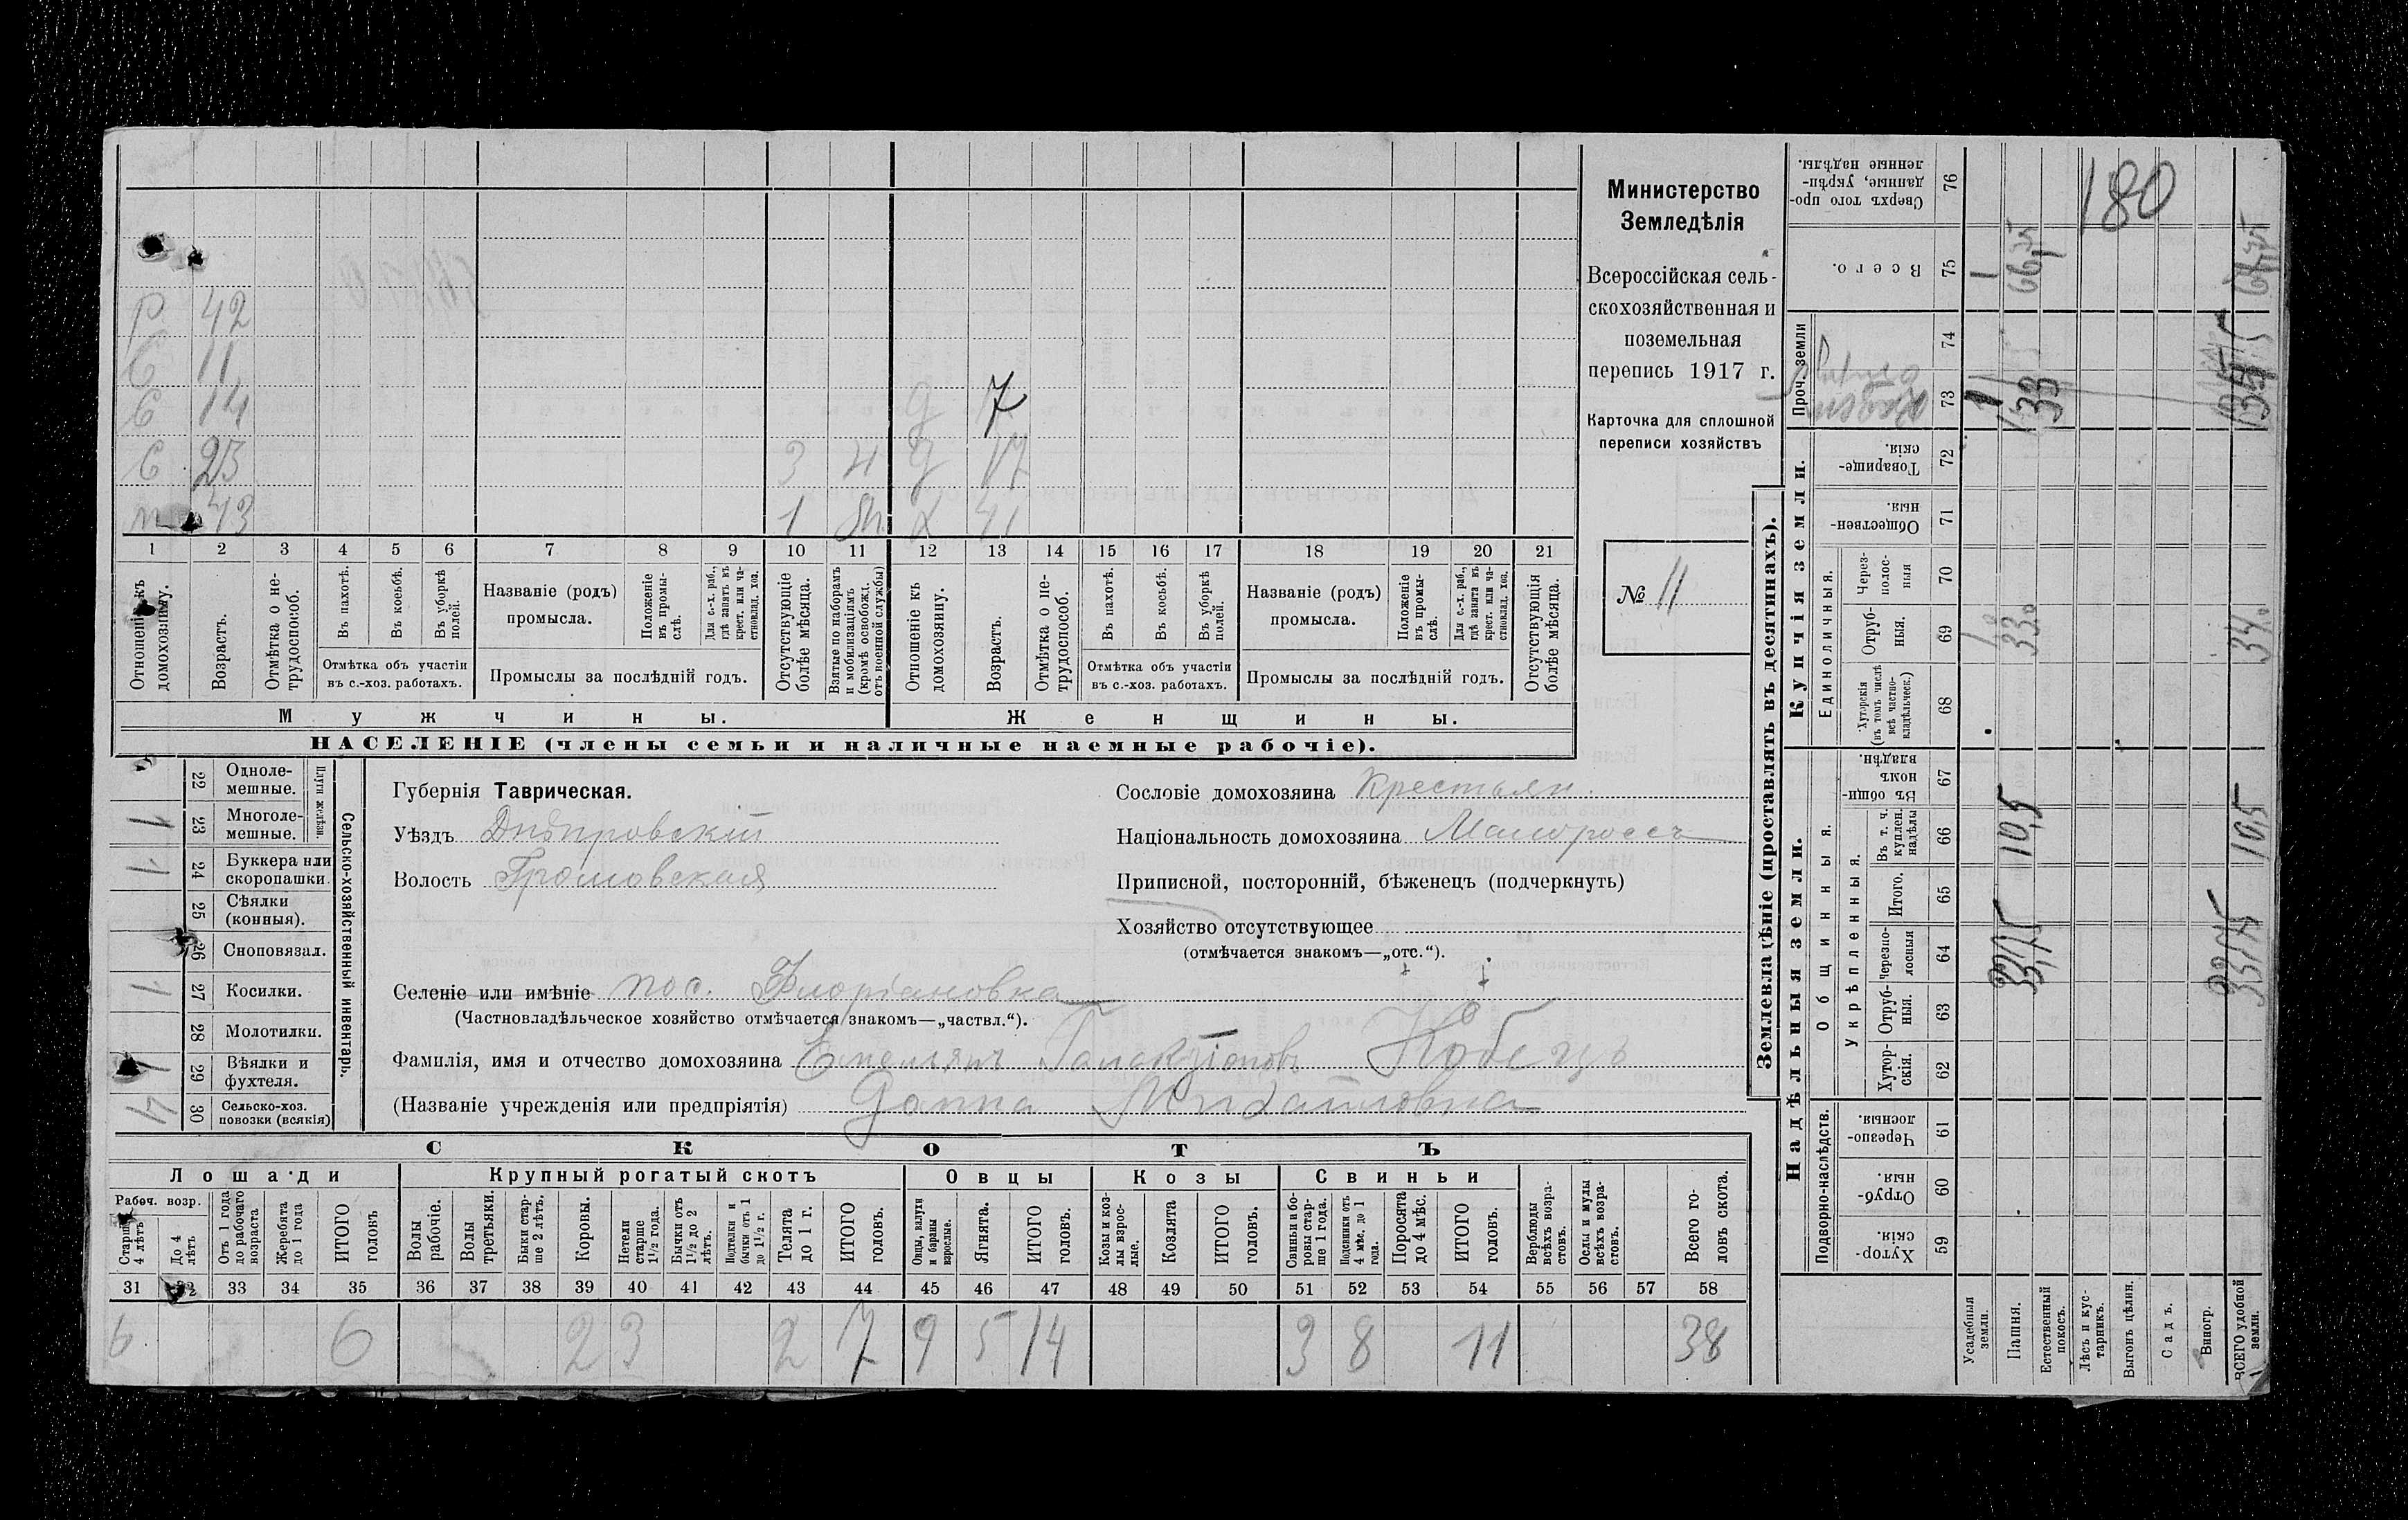 Министерство
Земледѣлія
Всероссійская сель-
скохозяйственная и
поземельная
перепись 1917 г.
Карточка для сплошной
переписи хозяйствъ
№ 11
Р 42
С 11
С 14
7
С 23
3
17
43
1
41
1 2 3 4 5 6 7 8 9 10 11 12 13 14 15 16 17 18 19 20 21
Отношеніе къ домохозяину.
Возрастъ.
Отмѣтка о не-трудоспособ.
Въ пахотѣ.
Въ косьбѣ.
Въ уборкѣ полей.
Отмѣтка объ участіи
въ с.-хоз. работахъ.
Названіе (родъ)
промысла.
Положеніе въ промы-слѣ.
Для с.-х. раб., гдѣ занятъ въ крест. или ча-стновлад. хоз.
Промыслы за послѣдній годъ.
Отсутствующіе болѣе мѣсяца.
Взятые по наборамъ и мобилизаціямъ (кромѣ освобожд. отъ военной службы)
Отношеніе къ домохозяину.
Возрастъ.
Отмѣтка о не-трудоспособ.
Въ пахотѣ.
Въ косьбѣ.
Въ уборкѣ полей.
Отмѣтка объ участіи
въ с.-хоз. работахъ.
Названіе (родъ)
промысла.
Положеніе въ промы-слѣ.
Для с.-х. раб., гдѣ занята въ крест. или ча-стновлад. хоз.
Промыслы за послѣдній годъ.
Отсутствующія болѣе мѣсяца.
Мужчины.
Женщины.
НАСЕЛЕНІЕ (члены семьи и наличные наемные рабочіе).
Сельско-хозяйственный инвентарь.
Плуги желѣзн.
22 Одноле-мешные.
1 23 Многоле-мешные.
1 24 Буккера или скоропашки.
25 Сѣялки (конныя).
26 Сноповязал.
1 27 Косилки.
28 Молотилки.
1 29 Вѣялки и фухтеля.
4 30 Сельско-хоз. повозки (всякія)
Губернія Таврическая.
Уѣздъ Днѣпровскій
Волость Громовская
Сословіе домохозяина Крестьян.
Національность домохозяина Малороссъ
Приписной, посторонній, бѣженецъ (подчеркнуть)
Хозяйство отсутствующее
(отмѣчается знакомъ—„отс.“).
Селеніе или имѣніе пос. Флоріановка
(Частновладѣльческое хозяйство отмѣчается знакомъ—„частвл.“).
Фамилія, имя и отчество домохозяина Емельянъ Галактіоновъ Кобецъ
(Названіе учрежденія или предпріятія) Домна Михайловна
СКОТЪ
Лошади
Крупный рогатый скотъ
Овцы
Козы
Свиньи
Рабоч. возр.
Старше 4 лѣтъ
До 4 лѣтъ
Отъ 1 года до рабочаго возраста
Жеребята до 1 года
ИТОГО головъ
Волы рабочіе.
Волы третьяки.
Быки стар-ше 2 лѣтъ.
Коровы.
Нетели старше 1½ года.
Бычки отъ 1½ до 2 лѣтъ.
Подтелки и бычки отъ 1 до 1½ г.
Телята до 1 г.
ИТОГО головъ.
Овцы, валухи и бараны взрослые.
Ягнята.
ИТОГО головъ.
Козы и коз-лы взрос-лые.
Козлята
ИТОГО головъ.
Свиньи и бо-ровы стар-ше 1 года.
Подсвинки отъ 4 мѣс. до 1 года.
Поросята до 4 мѣс.
ИТОГО головъ.
Верблюды всѣхъ возра-стовъ.
Ослы и мулы всѣхъ возра-стовъ.
Всего го-ловъ скота.
31 32 33 34 35 36 37 38 39 40 41 42 43 44 45 46 47 48 49 50 51 52 53 54 55 56 57 58
6 6 2 3 2 7 9 5 14 3 8 11 38
Землевладѣніе (проставлять въ десятинахъ).
Надѣльныя земли.
Купчія земли.
Проч. земли
Подворно-наслѣдств.
Общинныя.
Укрѣпленныя.
Единоличныя.
Хутор-скія. 59
Отруб-ныя. 60
Черезпо-лосныя. 61
Хутор-скія. 62
Отруб-ныя. 63
Черезпо-лосныя 64
Итого. 65
Въ т. ч. куплен. надѣлы 66
Въ общин-номъ владѣн. 67
Хуторскія (въ томъ числѣ всѣ частно-владѣльческ.) 68
Отруб-ныя. 69
Через-полос-ныя 70
Обществен-ныя. 71
Товарище-скія. 72
73
74
Всего. 75
Сверхъ того про-данные, укрѣп-ленные надѣлы. 76
Усадебныя земли.
Пашня.
33,75 10,5 33.
Естественный покосъ.
Лѣсъ и кус-тарникъ.
Выгонъ цѣлин.
180
Садъ.
Виногр.
ВСЕГО удобной земли.
33,75 10,5 34.